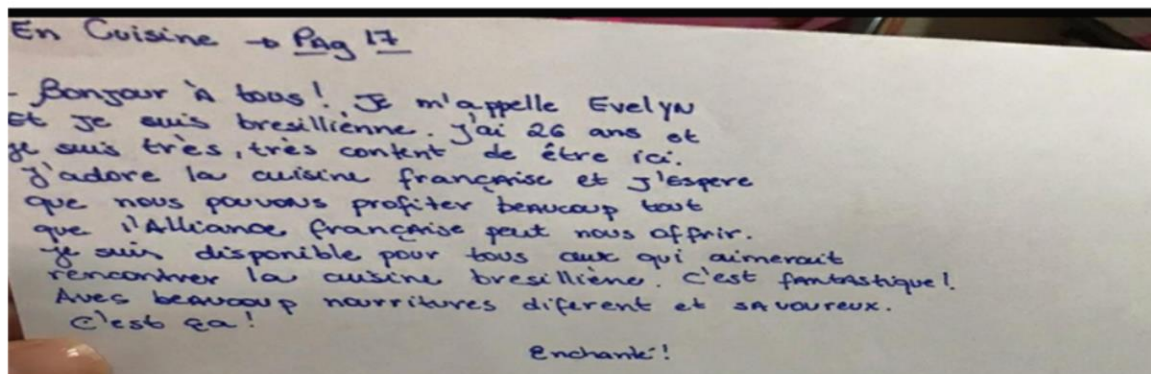 En Cuisine → PAg 17
- Bonjour À tous! Je m'appelle Evelyn
Et je suis bresilliènne. J'ai 26 ans et
je suis très, très content de être ici.
J'adore la cuisine française et J'espere
que nous pouvons profiter beaucoup tout
que l'Alliance française peut nous offrir.
je suis disponible pour tous aux qui aimerait
rencontrer la cuisine bresilliène. C'est fantastique!
Aves beaucoup nourritures diferent et savoureux.
C'est ça!
Enchanté!